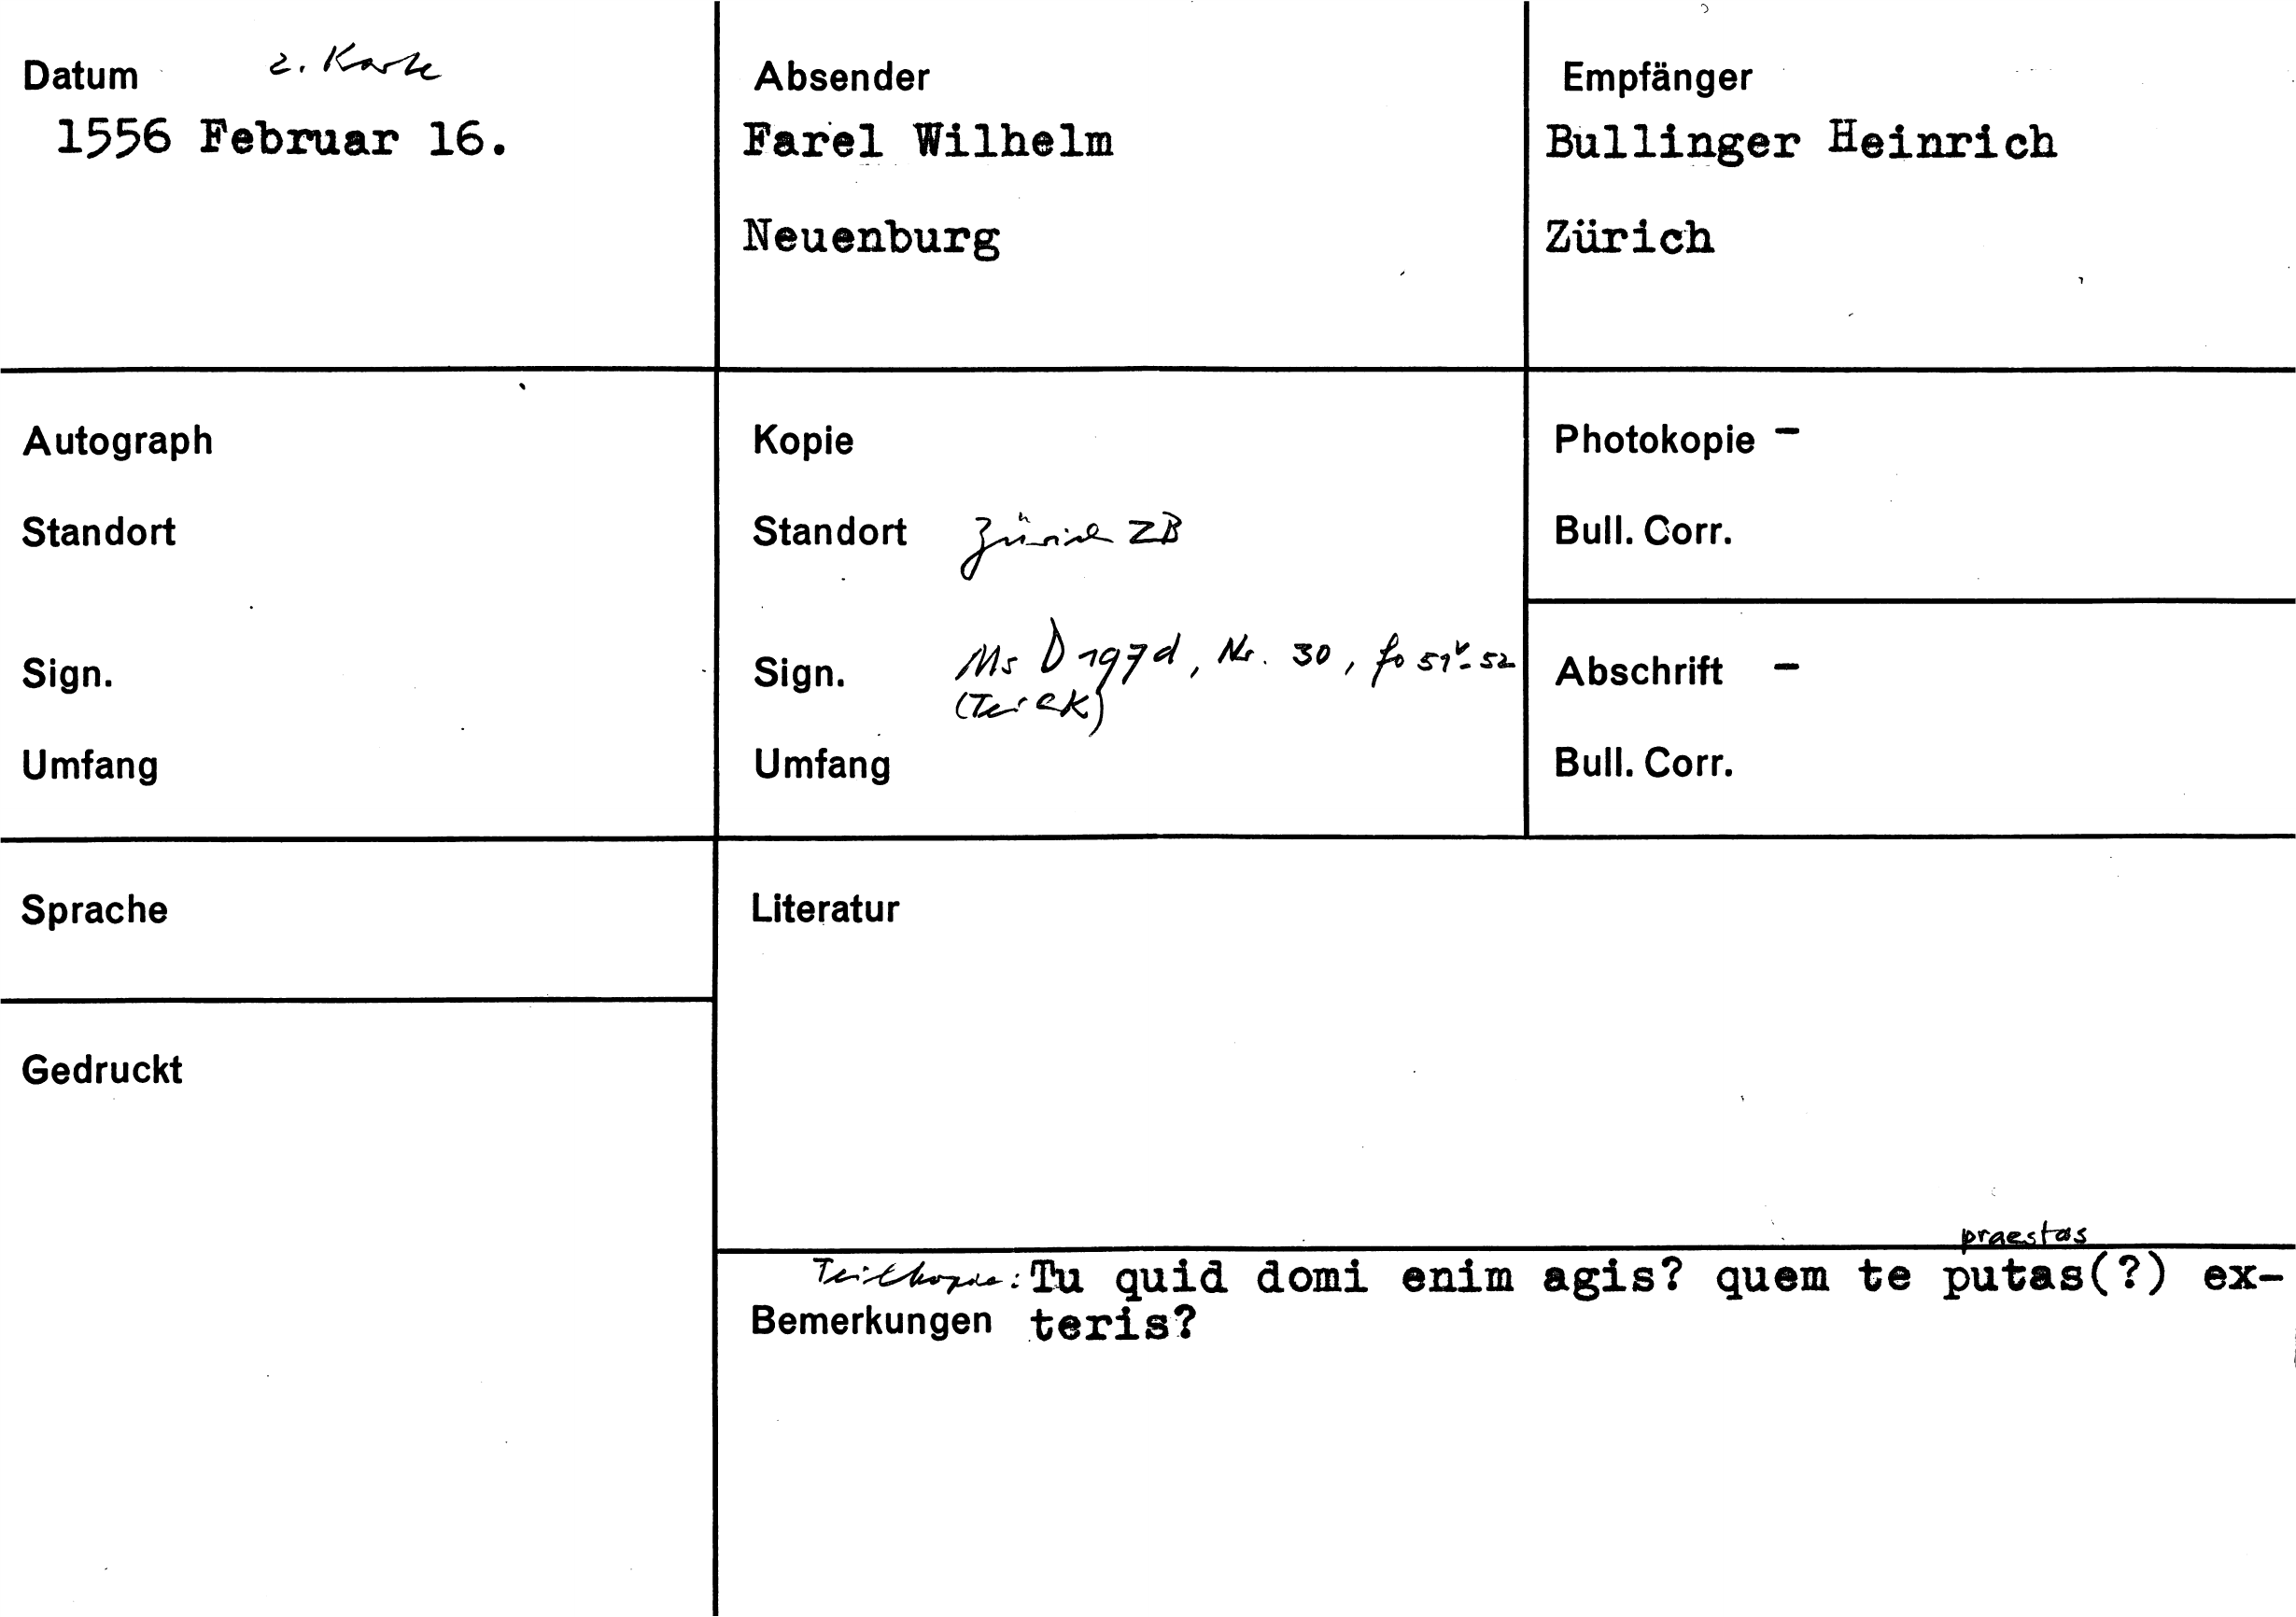 Datum 2. Karte
1556 Februar 16.
Absender
Farel Wilhelm
Neuenburg
Empfänger
Bullinger Heinrich
Zürich
Autograph
Standort
Sign.
Umfang
Kopie
Standort Zürich ZB
Sign. Ms D 197d, Nr. 30, fo 51v-52
(TeilK)
Umfang
Photokopie -
Bull. Corr.
Abschrift -
Bull. Corr.
Sprache
Gedruckt
Literatur
praestas
Teilkopie: Tu quid domi enim agis? quem te putas(?) ex-
Bemerkungen teris?